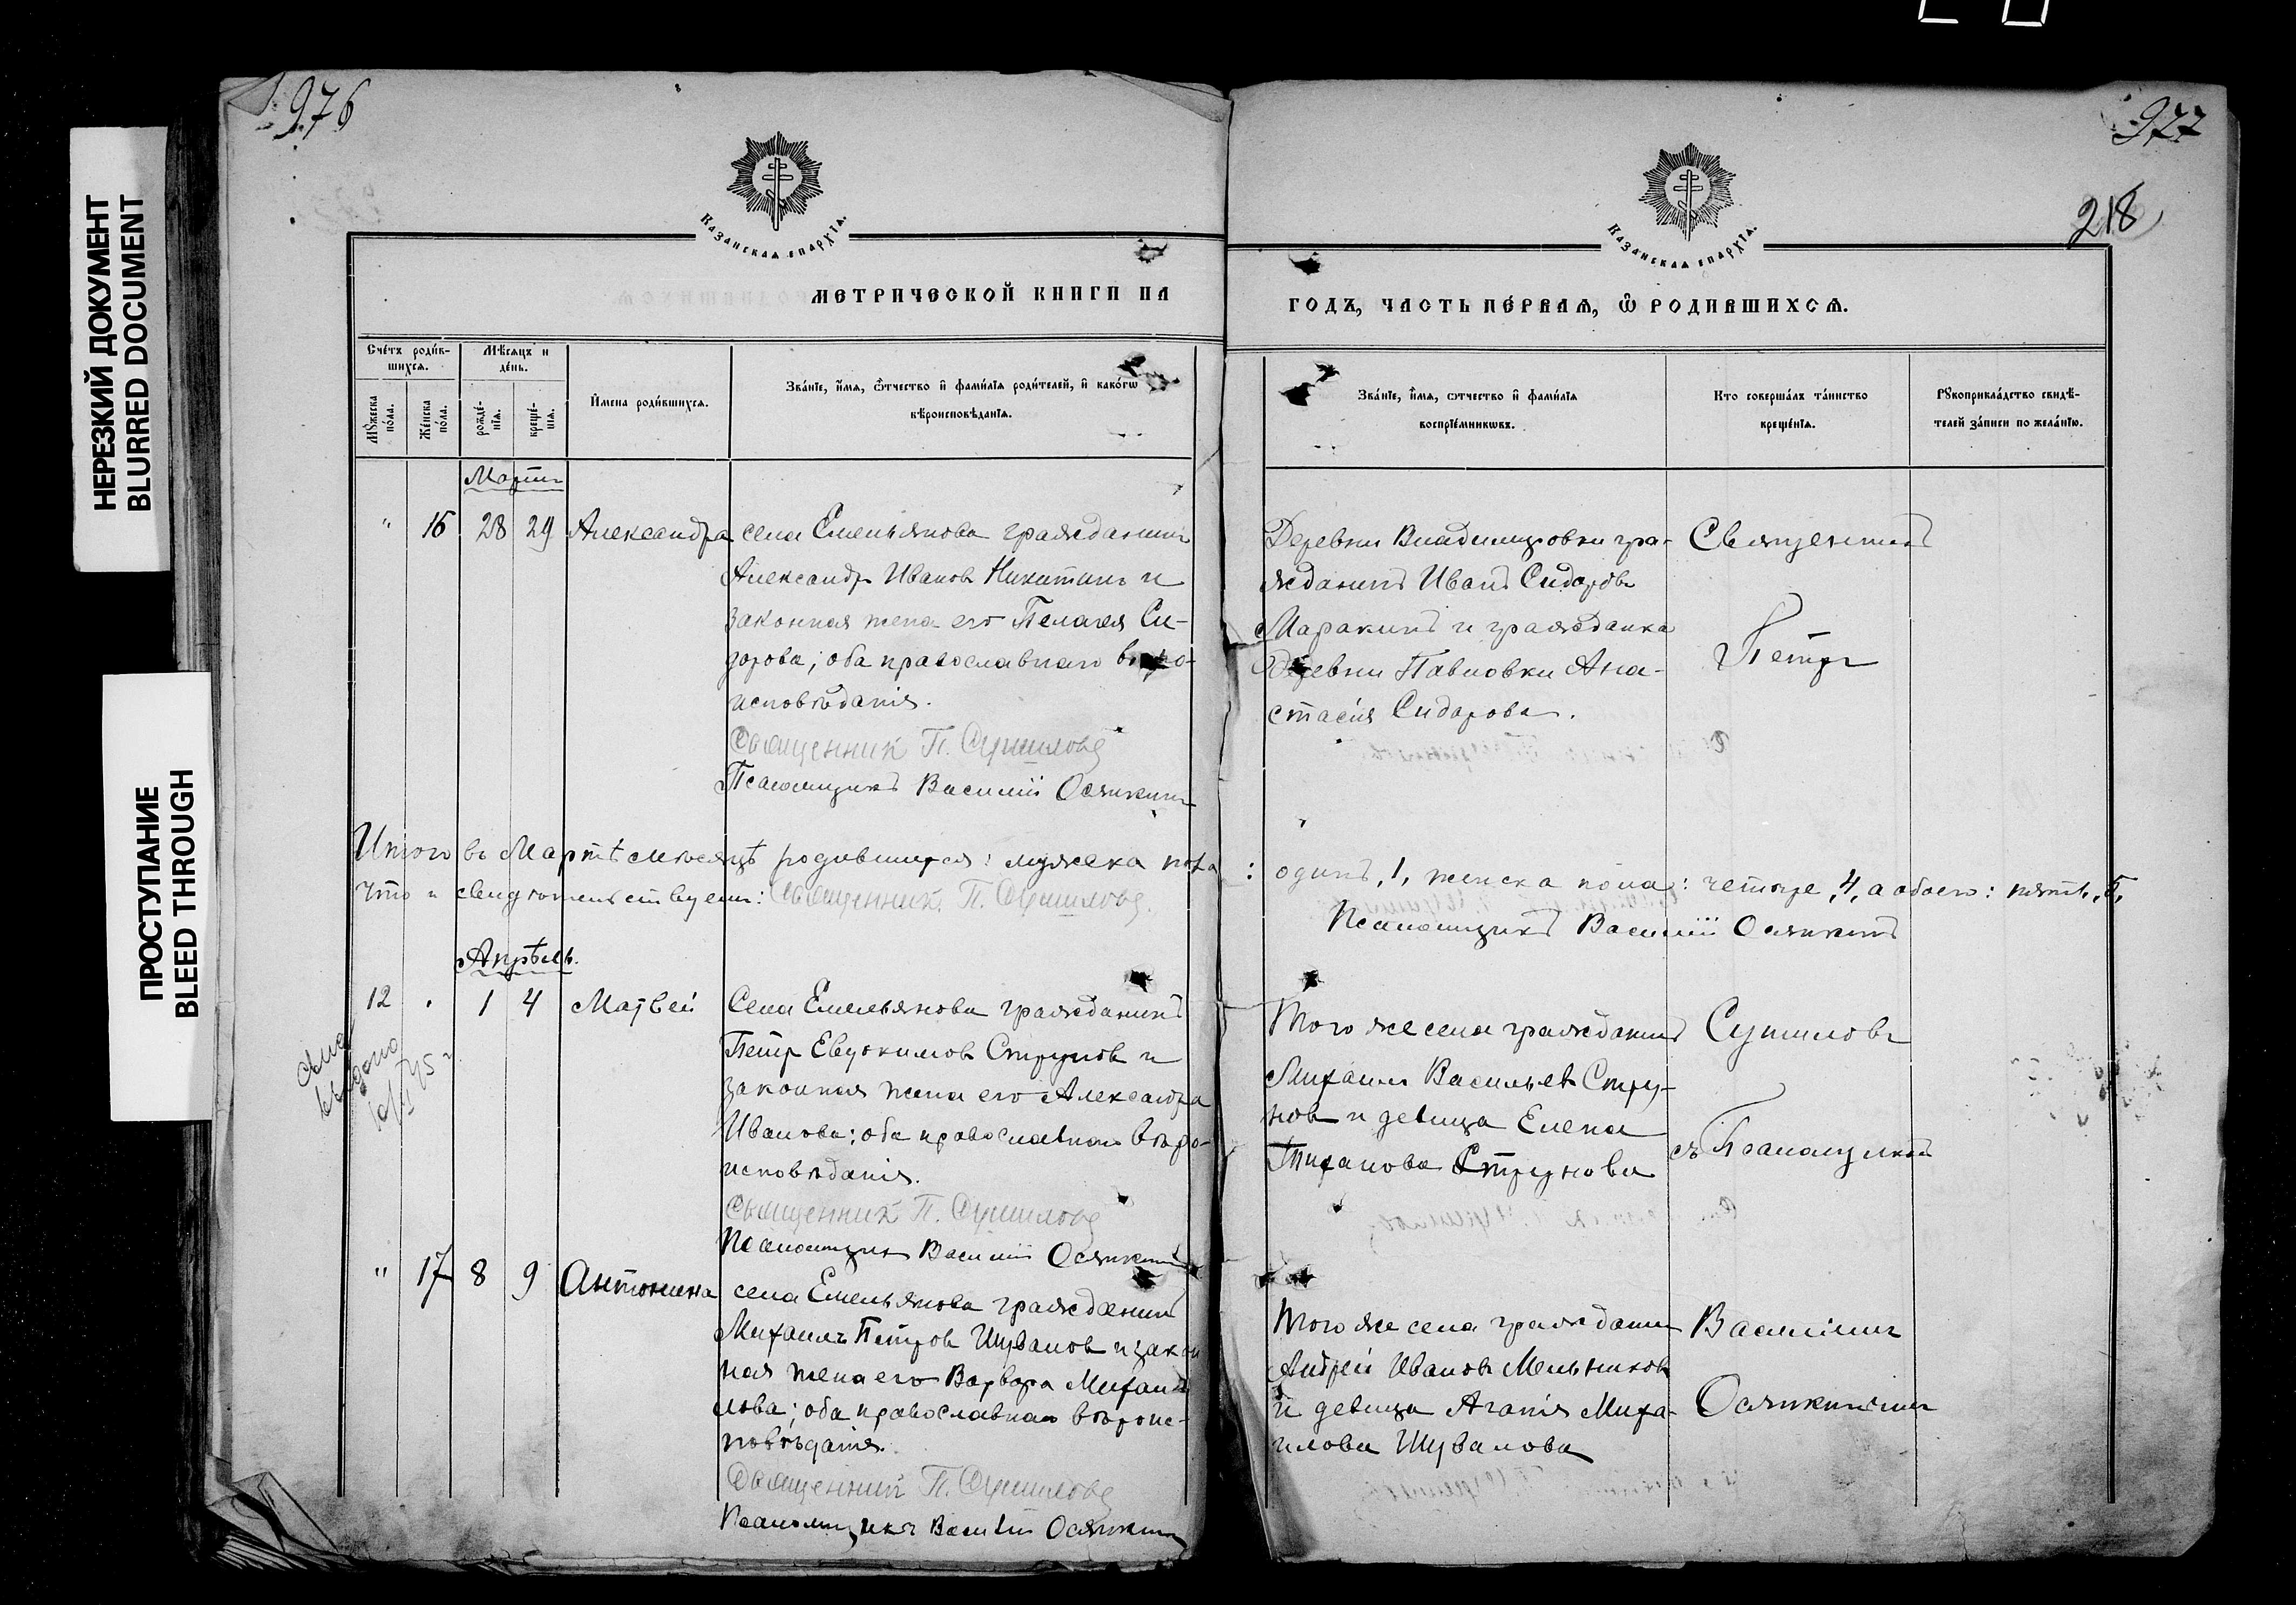 НЕРЕЗКИЙ ДОКУМЕНТ
BLURRED DOCUMENT
ПРОСТУПАНИЕ
BLEED THROUGH
976
Казанская епархїя.
МЕТРИЧЕСКОЙ КНИГИ НА
Сче́тъ роди́в-
шихся.
Мѣсяцъ и
де́нь.
Мꙋ́жеска
по́ла.
Же́нска
по́ла.
рожде́-
нїя.
креще́-
нїя.
И́мена роди́вшихся.
Зва́нїе, и́мя, ѻ҆́тчество и҆ фами́лїя роди́телей, и҆ како́гѡ
вѣроисповѣ́данїя.
Мартъ
" 16 28 29 Александра
села Емельянова гражданинъ
Александр Иванов Никитинъ и
законная жена его Пелагея Си-
дорова; оба православнаго вѣро-
исповѣданія.
Священник П. Сушиловъ
Псаломщикъ Василій Осянкинъ
Итого въ Мартѣ мѣсяцѣ родившихся: мужека пола
что и свидѣтельствуем: Священник П. Сушиловъ.
Апрѣль.
12 . 1 4 Матвей
Села Емельянова гражданинъ
Петр Евдокимов Струнов и
законная жена его Александра
Иванова; оба православнаго вѣро-
исповѣданія.
Священник П. Сушиловъ
Псаломщик Василій Осянкинъ
" 17 8 9 Антонина
села Емельянова гражданинъ
Михаилъ Петров Шувалов и закон
ная жена его Варвара Михаи
лова; оба православнаго вѣроис-
повѣданія.
Священник П. Сушиловъ
Псаломщикъ Василій Осянкинъ
977
218
Казанская епархїя.
ГОДЪ, ЧАСТЬ ПЕ́РВАЯ, Ѽ РОДИВШИХСЯ.
Зва́нїе, и҆́мя, ѻтчество и҆ фами́лїя
воспрїе́мникѡвъ.
Кто соверша́лъ та́инство
креще́нїя.
Рꙋкоприкла́дство свидѣ́-
телей за́писи по жела́нїю.
Деревни Владимировки гра-
жданинъ Иванъ Сидоровъ
Маракинъ и гражданка
деревни Павловки Ана-
стасія Сидорова.
Священникъ
Петръ
: одинъ, 1, женска пола: четыре, 4, а обоего: пять, 5,
Псаломщикъ Василій Осянкинъ
Того же села гражданинъ
Михаил Васильев Стру-
нов и девица Елена
Тихонова Струнова
Сушиловъ
съ Псаломщикомъ
Того же села гражданин
Андрей Иванов Мельников
и девица Агапія Миха-
илова Шувалова
Василіемъ
Осянкинымъ